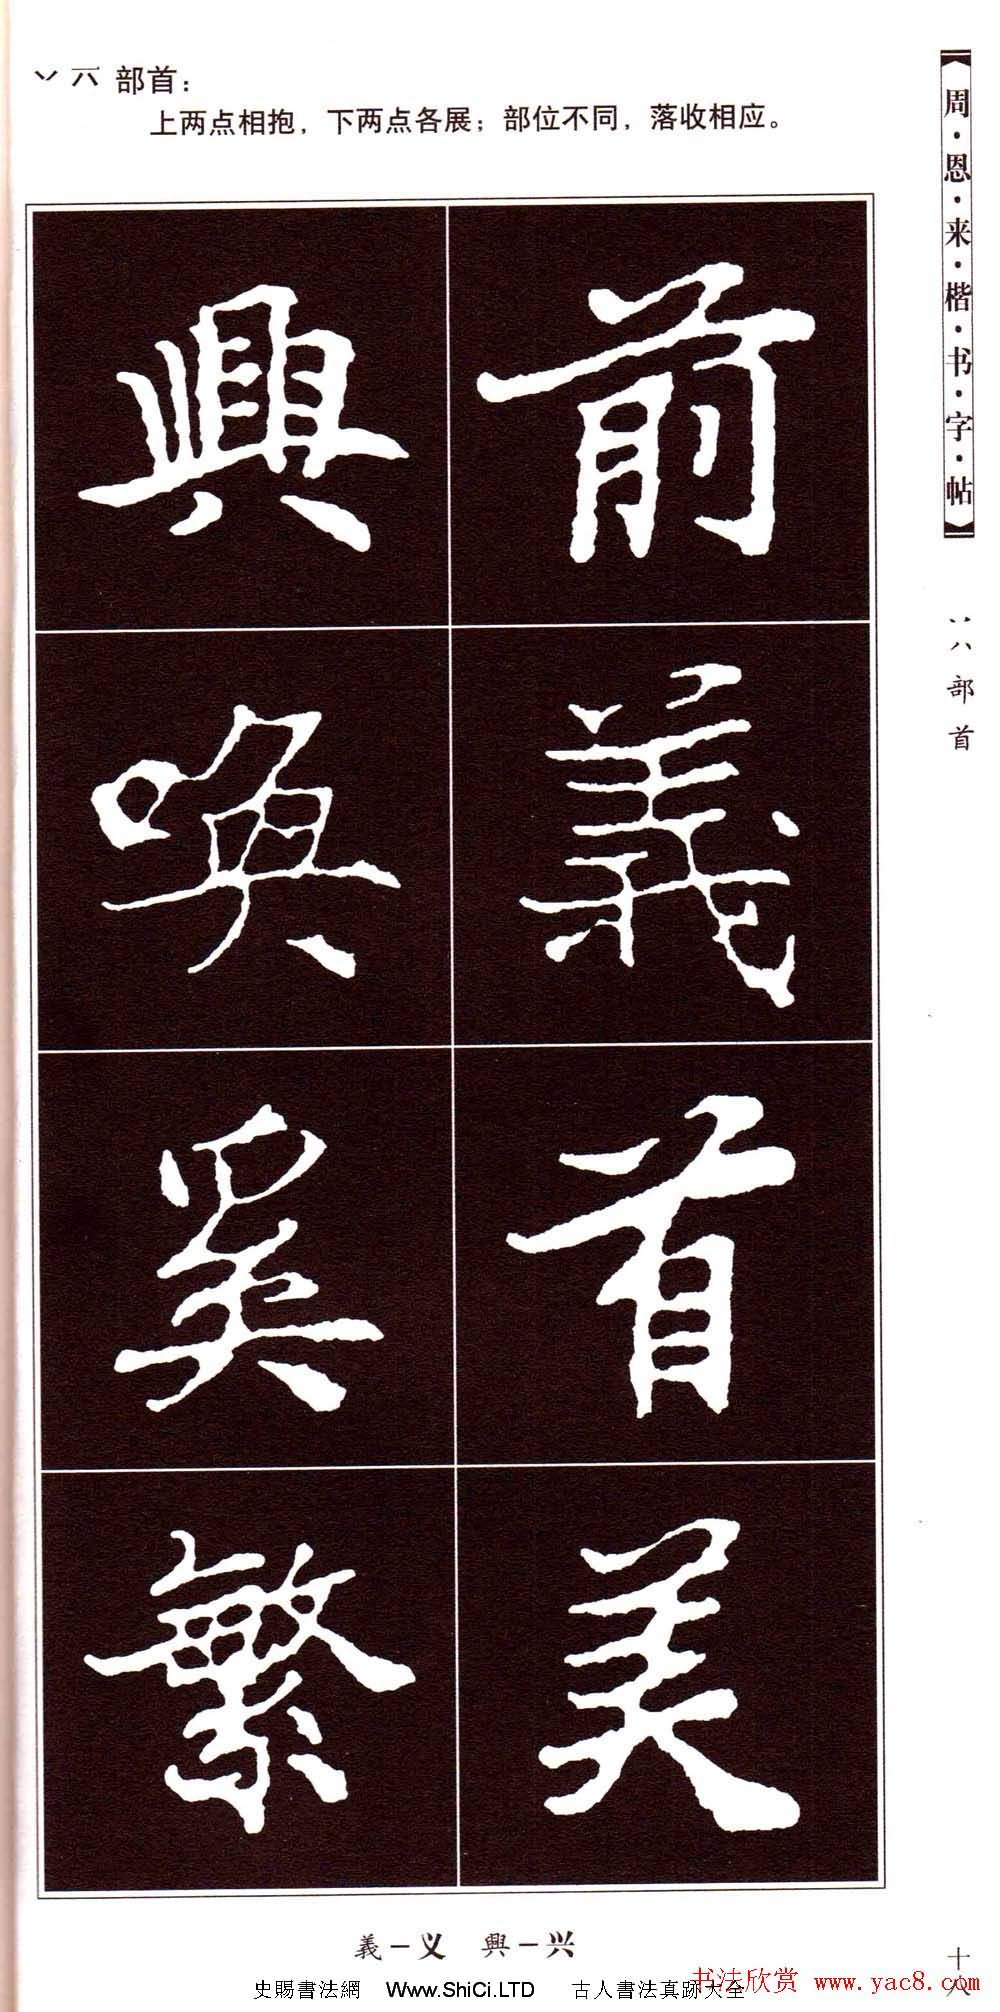 丷 六 部首：
上两点相抱，下两点各展；部位不同，落收相应。
周·恩·来·楷·书·字·帖
丷八部首
前義首美
興唤奚繁
義－义　興－兴
十八
史賜書法網　Www.ShiCi.LTD　古人書法真跡大全
书法欣赏 www.yac8.com